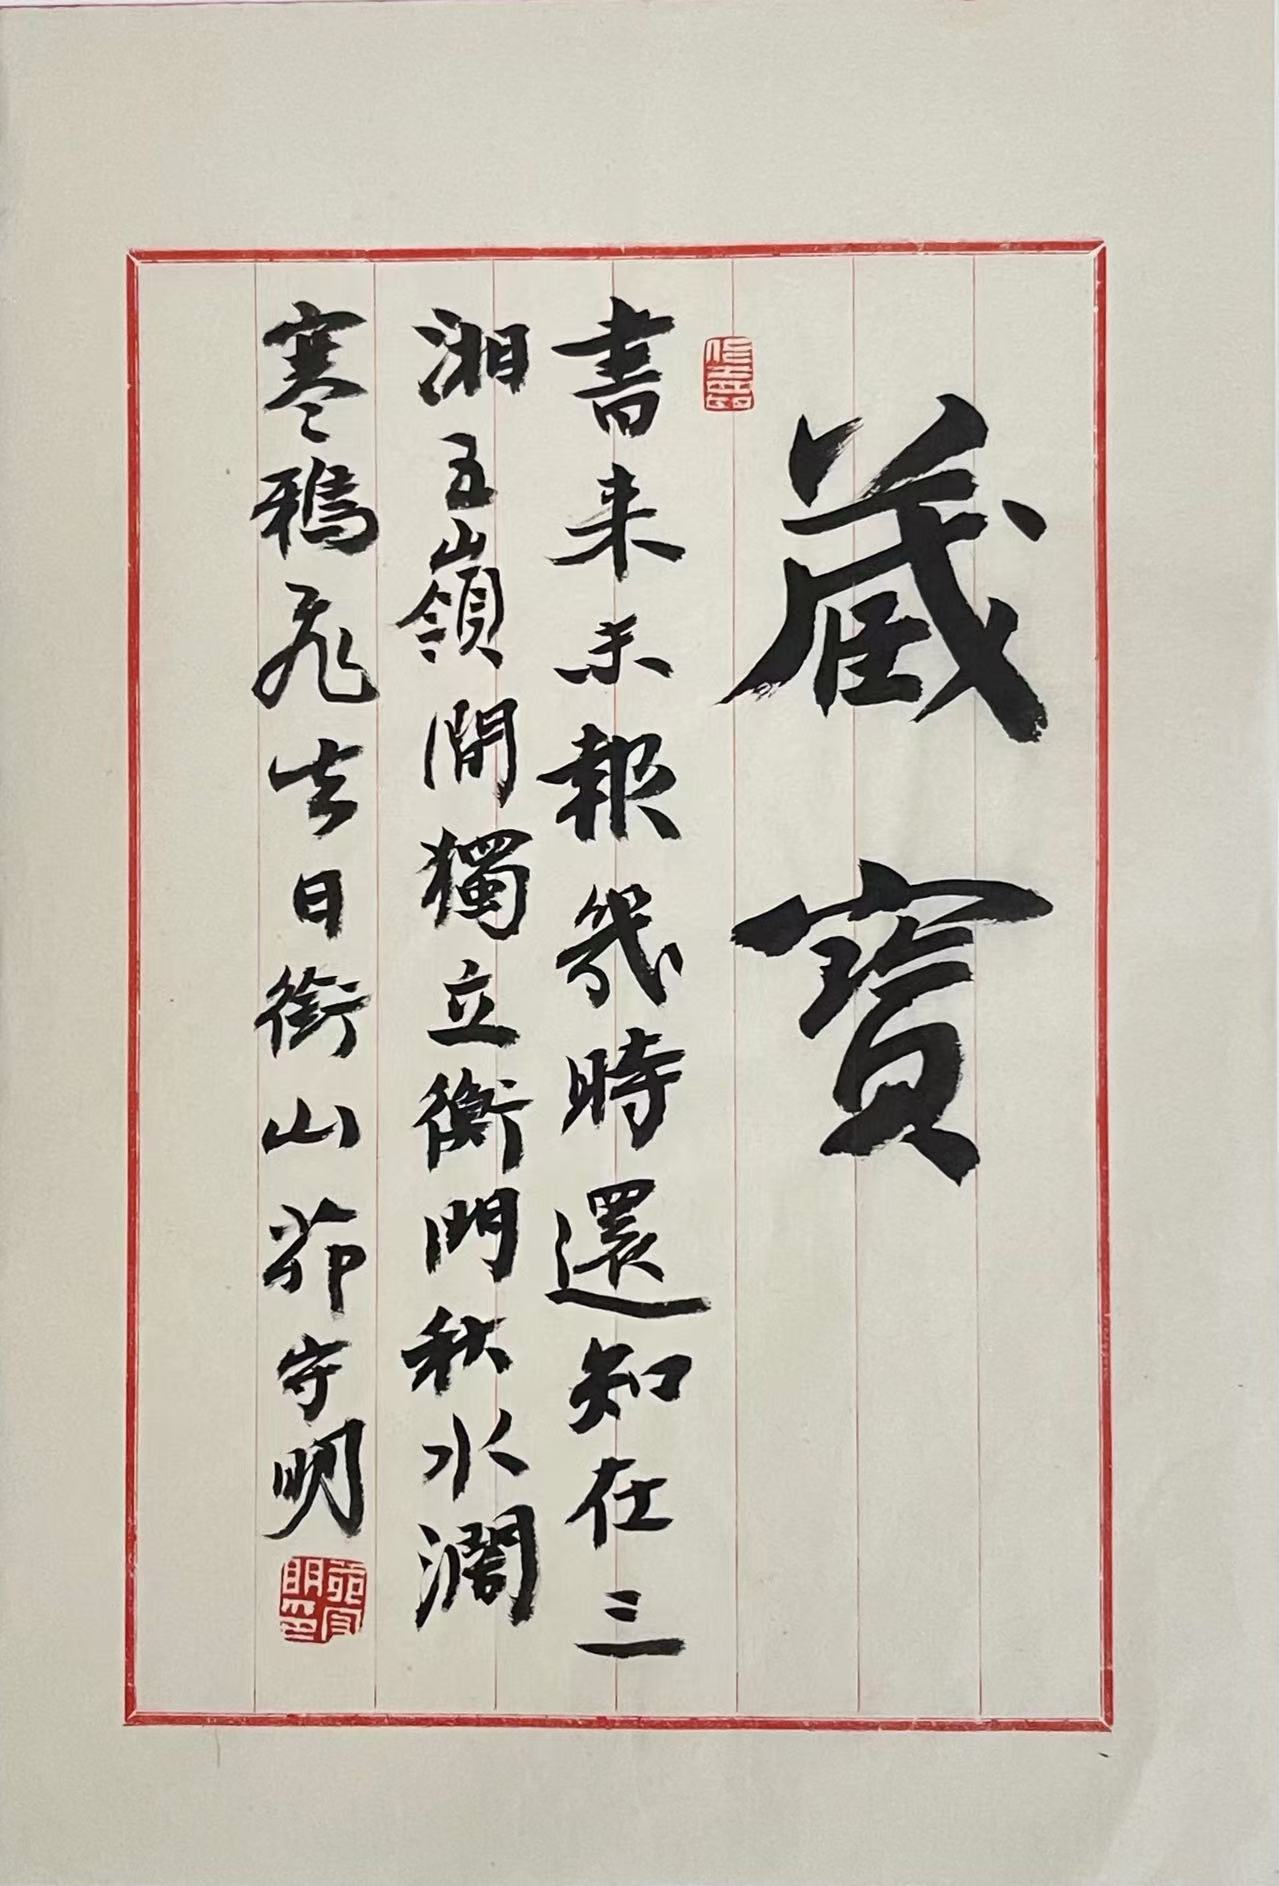 藏寶
書来未報幾時還知在三
湘五嶺間獨立衡門秋水闊
寒鴉飛去日銜山茆守明